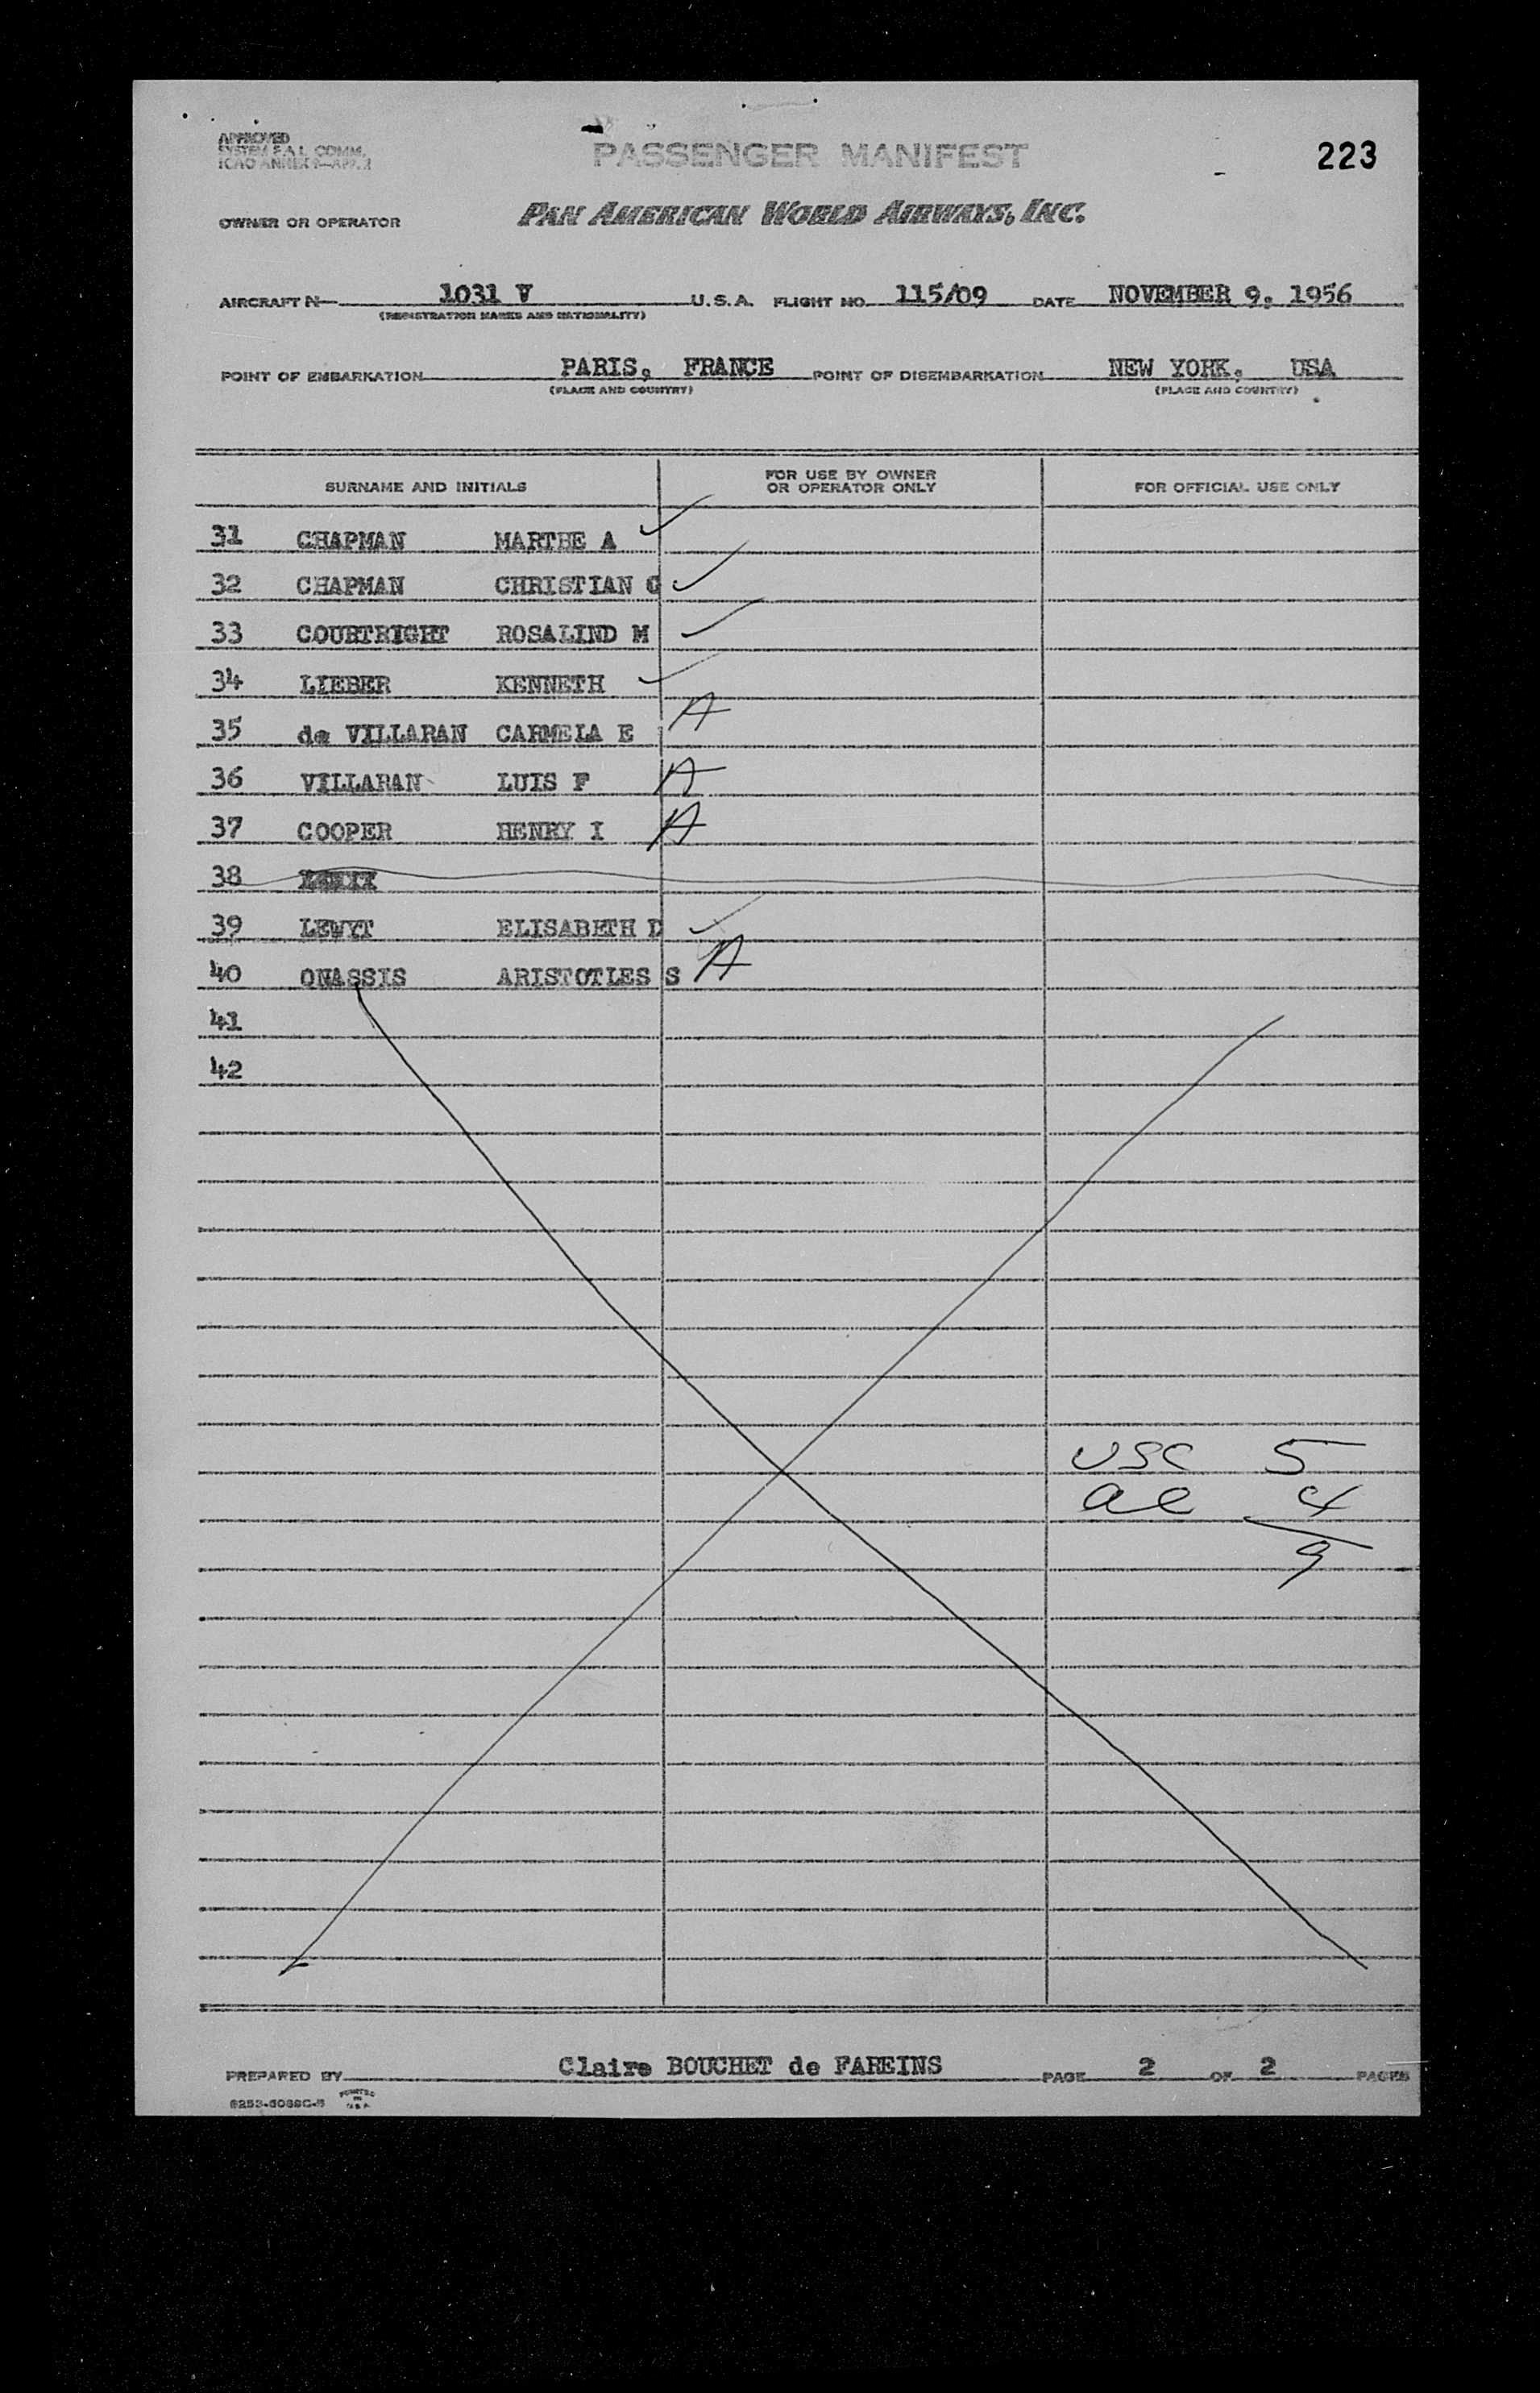 APPROVED
SYSTEM F.A.L. COMM.
ICAO ANNEX 9—APP. 2
PASSENGER MANIFEST
223
OWNER OR OPERATOR
PAN AMERICAN WORLD AIRWAYS, INC.
AIRCRAFT N— 1031 V U.S.A. FLIGHT NO. 115/09 DATE NOVEMBER 9, 1956
(REGISTRATION MARKS AND NATIONALITY)
POINT OF EMBARKATION PARIS, FRANCE POINT OF DISEMBARKATION NEW YORK, USA
(PLACE AND COUNTRY) (PLACE AND COUNTRY)
SURNAME AND INITIALS
FOR USE BY OWNER
OR OPERATOR ONLY
FOR OFFICIAL USE ONLY
31 CHAPMAN MARTHE A
32 CHAPMAN CHRISTIAN G
33 COURTRIGHT ROSALIND M
34 LIEBER KENNETH
35 de VILLARAN CARMELA E A
36 VILLARAN LUIS F A
37 COOPER HENRY I A
38
39 LEWYT ELISABETH D
40 ONASSIS ARISTOTLES S A
41
42
USC 5
ae 4
9
PREPARED BY Claire BOUCHET de FAREINS PAGE 2 OF 2 PAGES
PRINTED
IN
U.S.A.